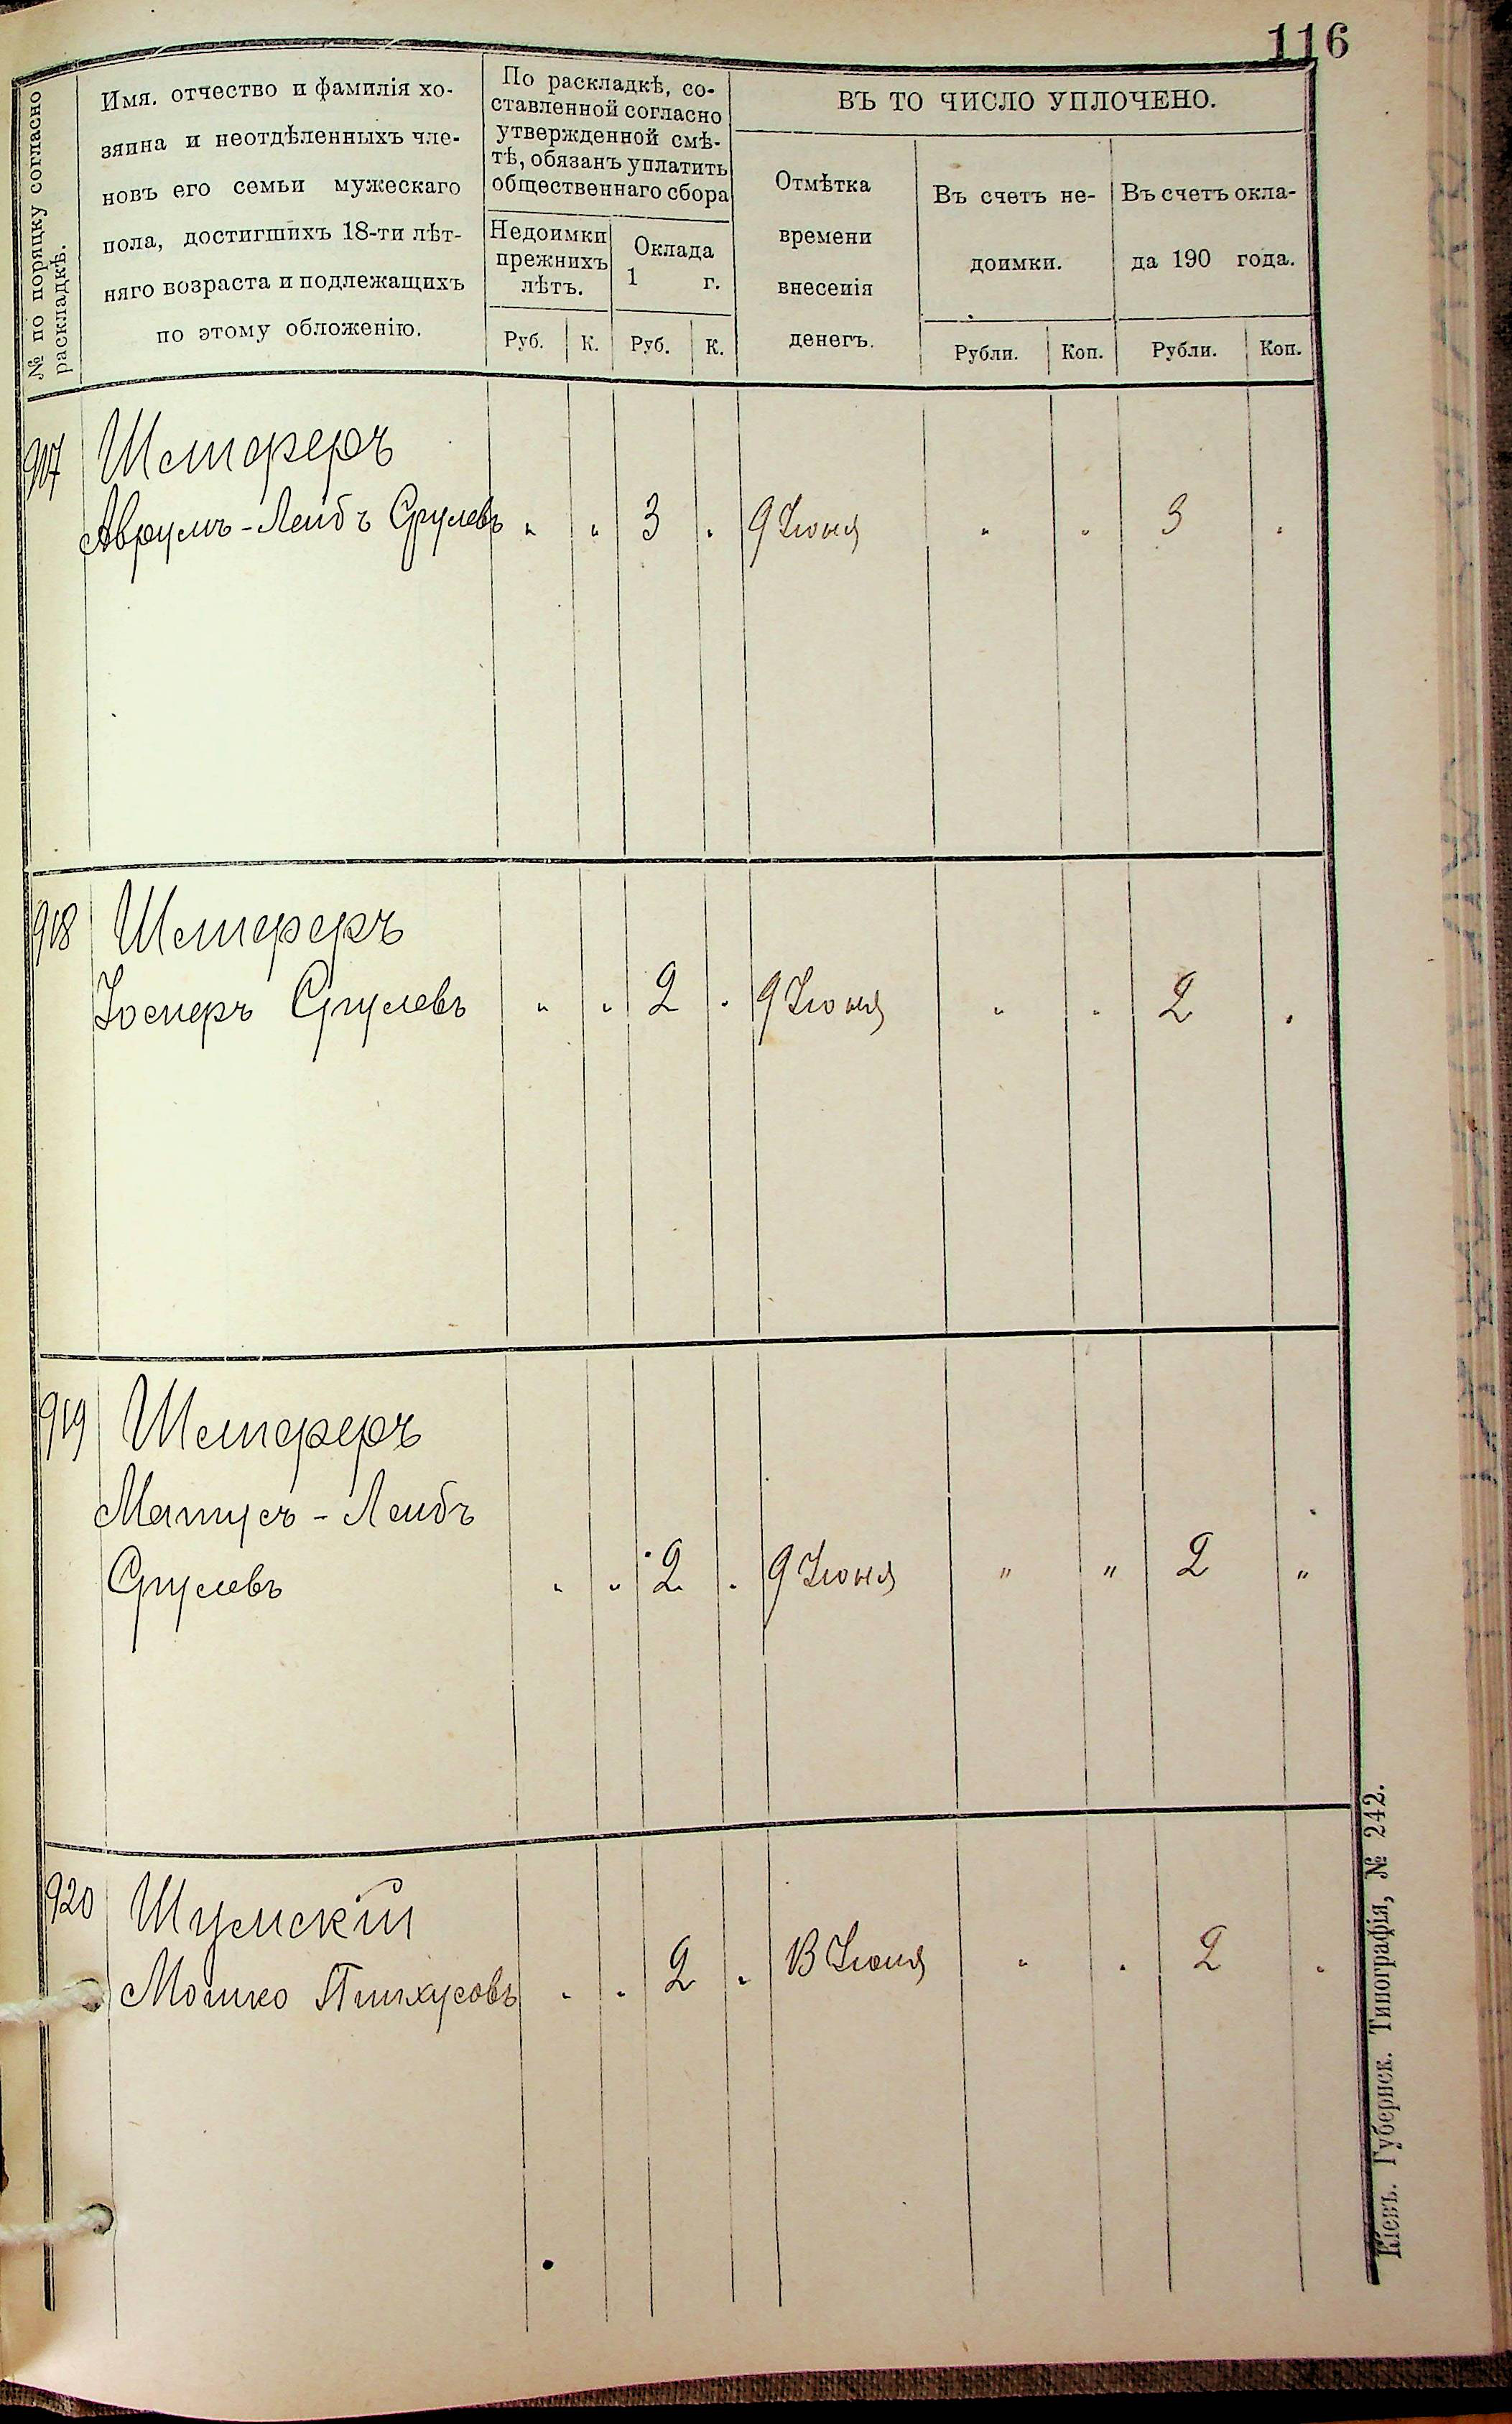 116
№ по порядку согласно
раскладкѣ.
Имя. отчество и фамилія хо-
зяина и неотдѣленныхъ чле-
новъ его семьи мужескаго
пола, достигшихъ 18-ти лѣт-
няго возраста и подлежащихъ
по этому обложенію.
По раскладкѣ, со-
ставленной согласно
утвержденной смѣ-
тѣ, обязанъ уплатить
общественнаго сбора
Недоимки
прежнихъ
лѣтъ.
Оклада
1 г.
Руб. К. Руб. К.
ВЪ ТО ЧИСЛО УПЛОЧЕНО.
Отмѣтка
времени
внесенія
денегъ.
Въ счетъ не-
доимки.
Въ счетъ окла-
да 190 года.
Рубли. Коп. Рубли. Коп.
917 Шемферъ
Аврумъ-Лейбъ Срулевъ " " 3 " 9 Іюня " " 3 "
918 Шемферъ
Іосперъ Срулевъ " " 2 " 9 Іюня " " 2 "
919 Шемферъ
Матусъ-Лейбъ
Срулевъ " " 2 " 9 Іюня " " 2 "
920 Шумскій
Мошко Пинхусовъ " " 2 " 13 " " 2 "
Кіевъ. Губернск. Типографія, № 242.